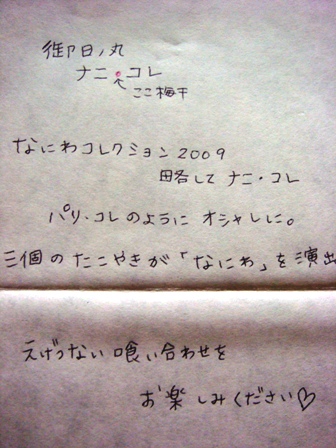 御日ノ丸
ナニ・コレ
ここ梅干
なにわコレクション2009
略して ナニ・コレ
パリ・コレのように オシャレに。
三個のたこやきが「なにわ」を演出
えげつない喰い合わせを
お楽しみください♡